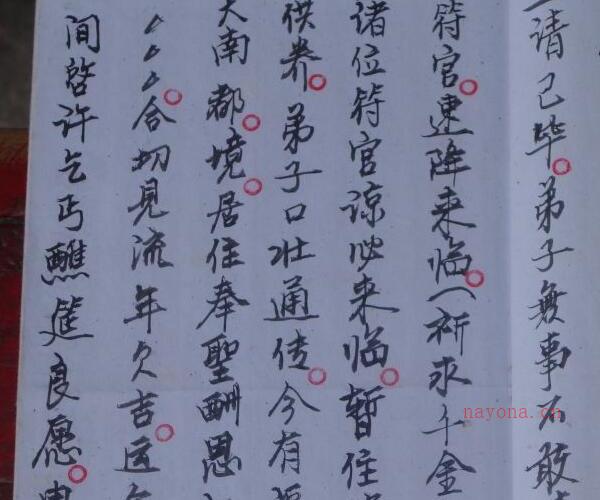 请已毕。弟子無事不敢
符官。速降来临。祈求千金
诸位符官谅必来临。暫住
供养。弟子口壮通传。今有
大南都。境。居住奉聖酬恩
合切見流年欠吉。运
间啓许乞丐醮筵良愿。
nayona.cn